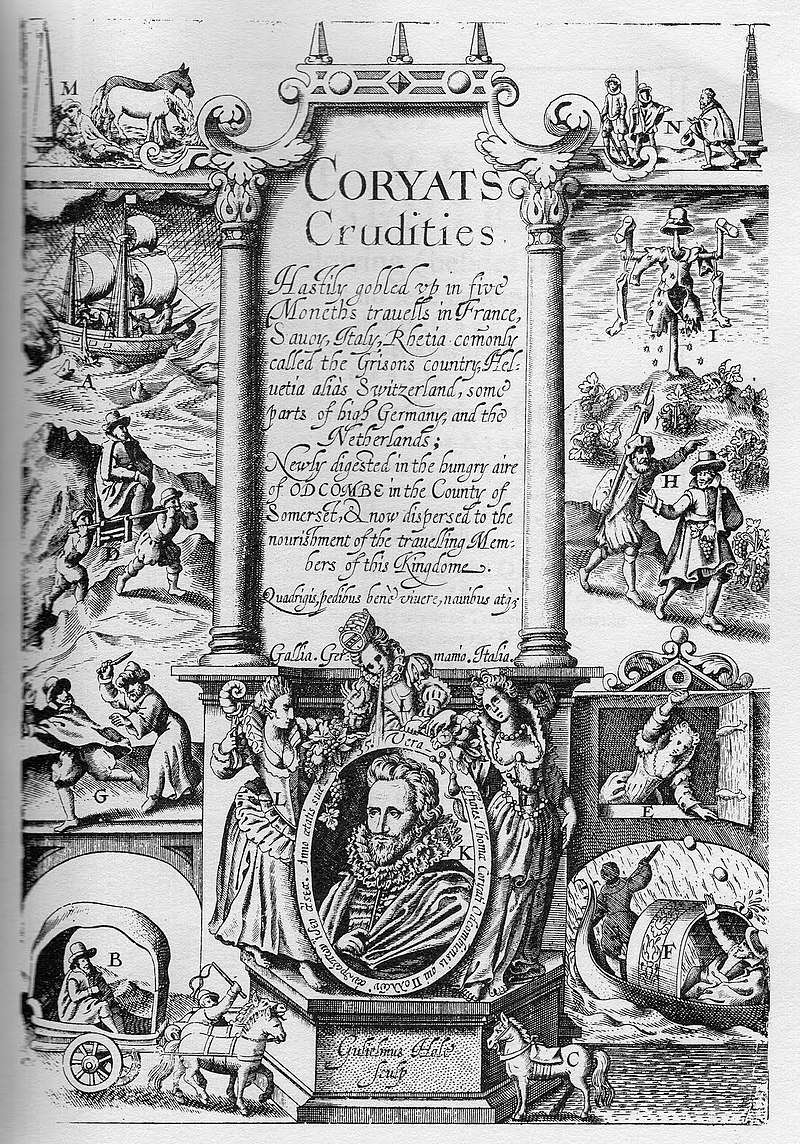 M
N
CORYATS
Crudities.
Hastily gobled vp in five
Moneths travells in France,
Savoy, Italy, Rhetia comonly
called the Grisons country, Hel-
vetia aliàs Switzerland, some
parts of high Germany, and the
Netherlands;
Newly digested in the hungry aire
of ODCOMBE in the County of
Somerset, & now dispersed to the
nourishment of the travelling Mem-
bers of this Kingdome.
Quadrigis, pedibus benè viuere, nauibus atq;
Gallia. Ger- manio. Italia.
A
I
H
G
L
L
E
Vera
Thomæ Coryati
Anno ætatis suæ
K
B
F
C
Gulielmus Hole
sculp